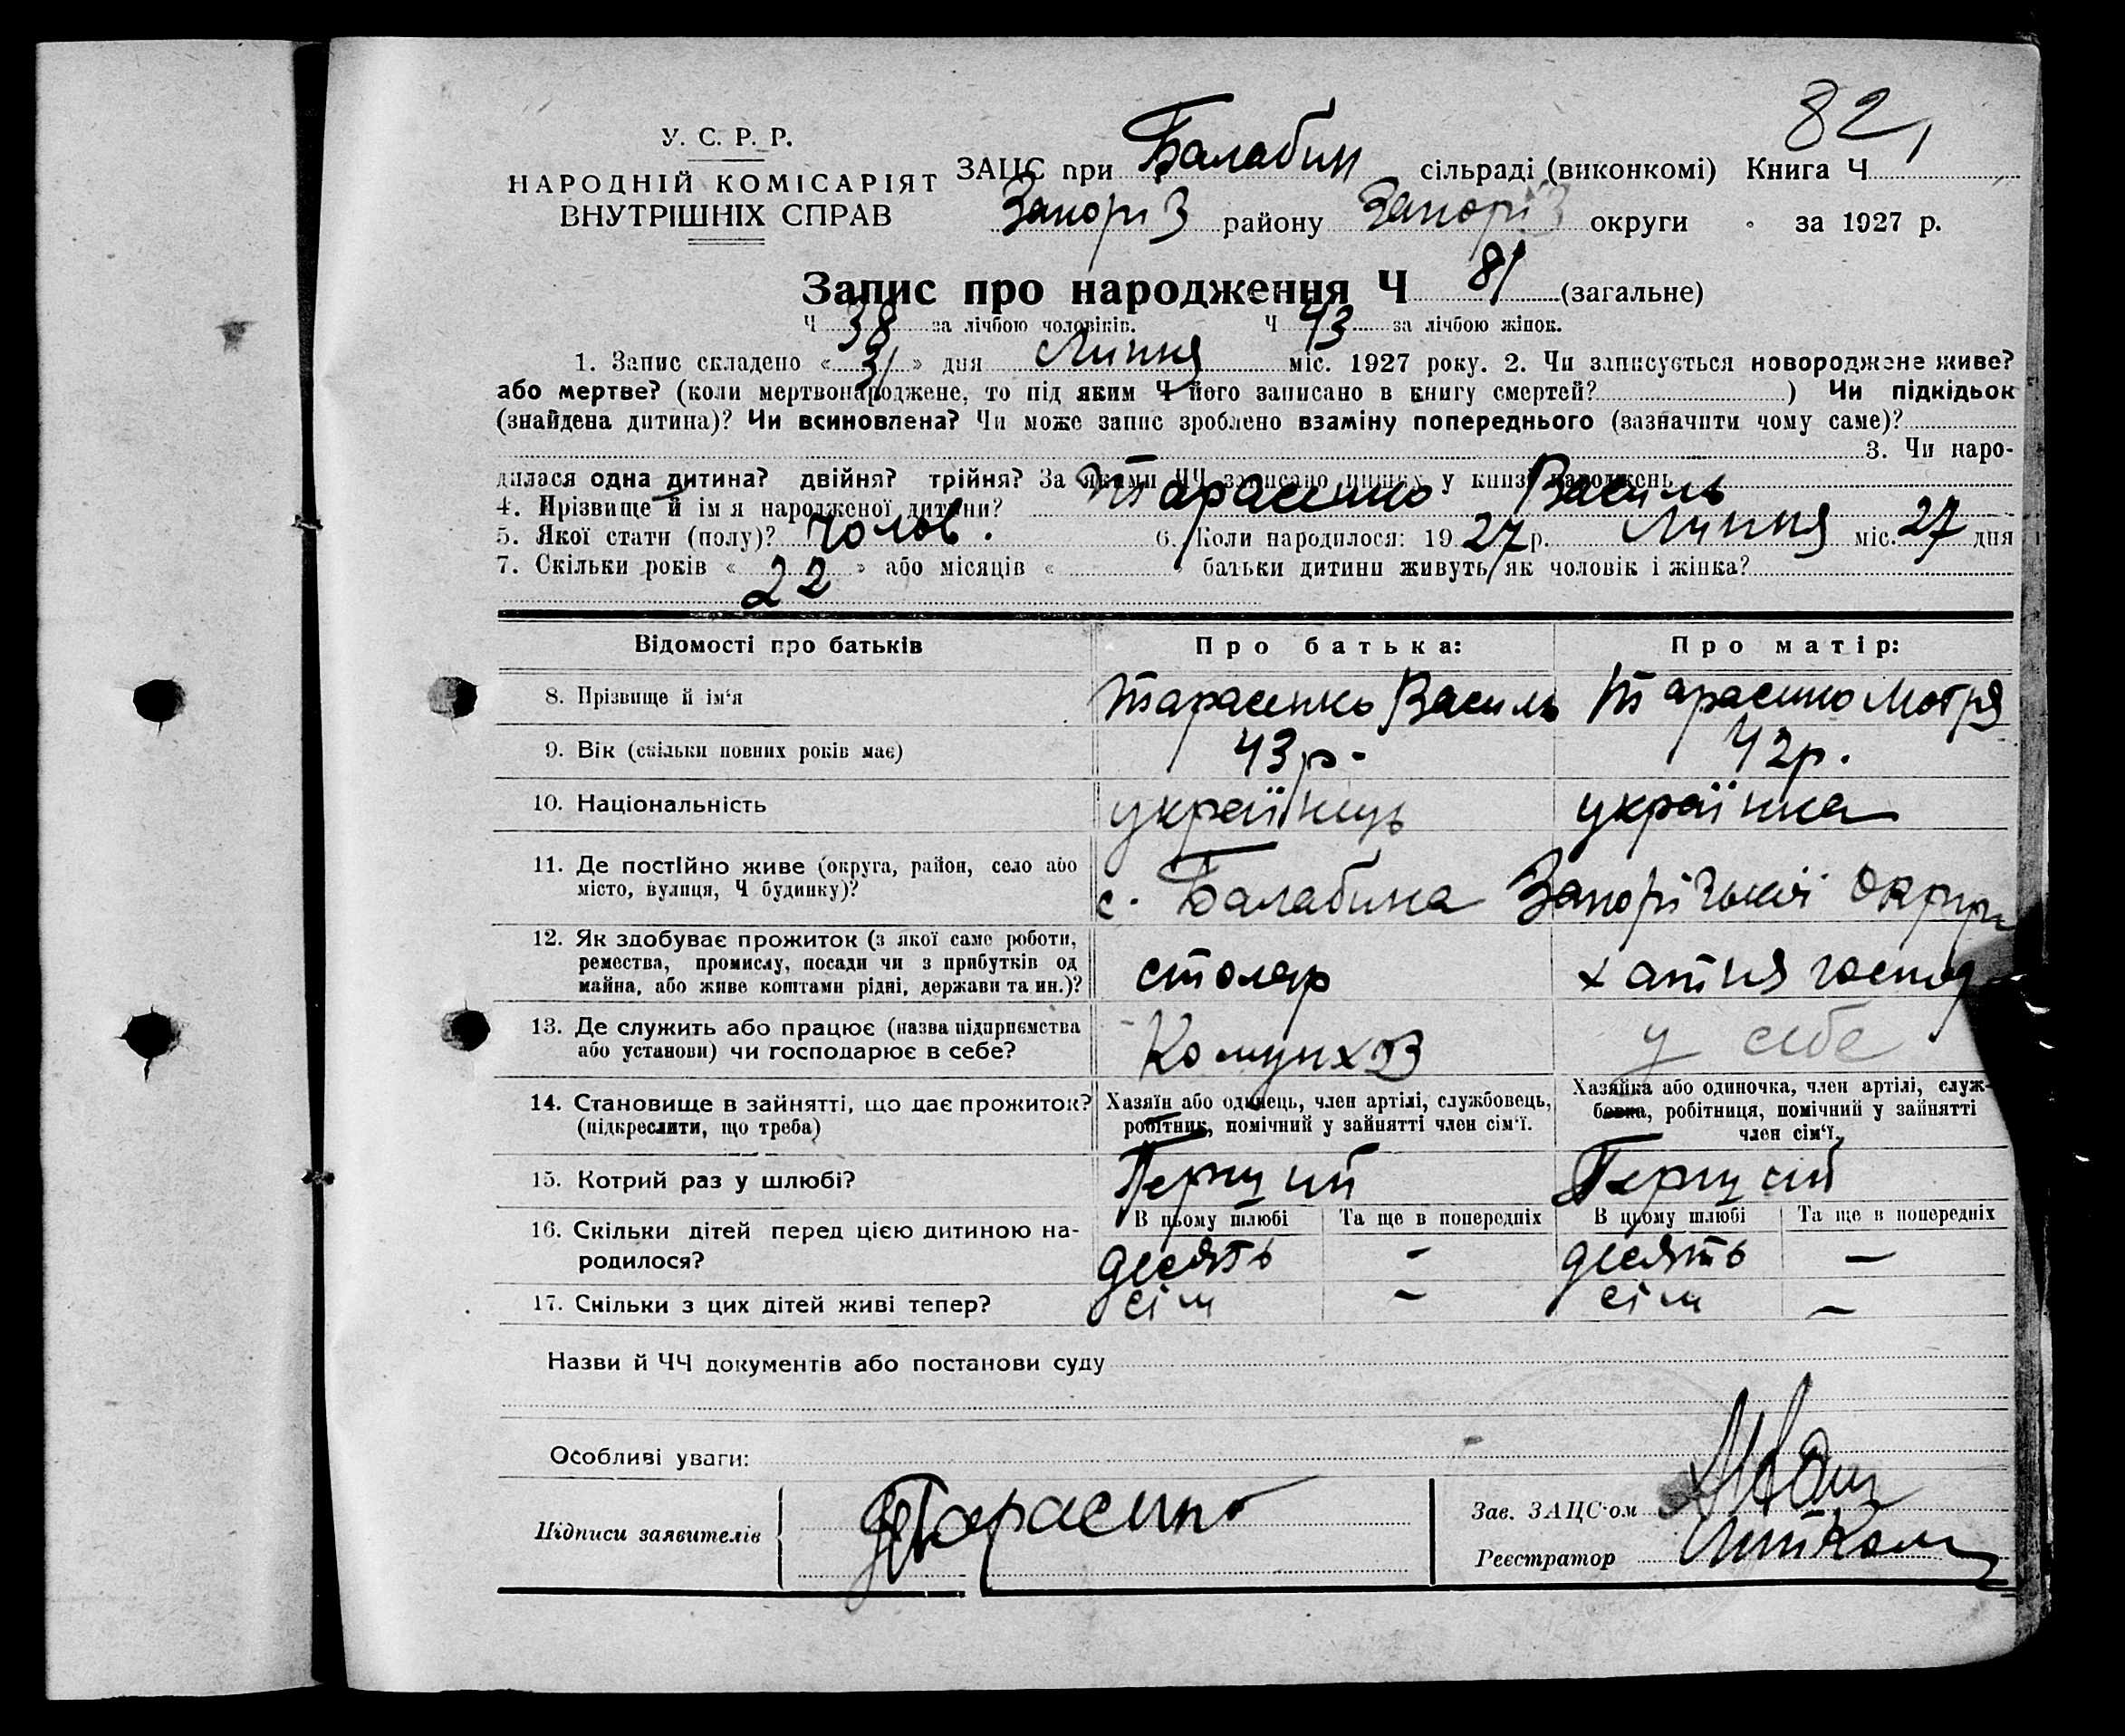 82,
У. С. Р. Р.
НАРОДНІЙ КОМІСАРІЯТ
ВНУТРІШНІХ СПРАВ
ЗАЦС при Балабин сільраді (виконкомі) Книга Ч
Запоріз району Запоріз округи за 1927 р.
Запис про народження Ч 81 (загальне)
Ч 38 за лічбою чоловіків. Ч 43 за лічбою жінок.
1. Запис складено «31» дня Липня міс. 1927 року. 2. Чи записується новороджене живе?
або мертве? (коли мертвонароджене, то під яким Ч його записано в книгу смертей? ) Чи підкідьок
(знайдена дитина)? Чи всиновлена? Чи може запис зроблено взаміну попереднього (зазначити чому саме)?
3. Чи наро-
дилася одна дитина? двійня? трійня? За якими ЧЧ записано инших у книзі народжень
4. Прізвище й ім я народженої дитини? Тарасенко Василь
5. Якої стати (полу)? Чолов. 6. Коли народилося: 1927 р. Липня міс. 27 дня
7. Скільки років « 22 » або місяців « » батьки дитини живуть як чоловік і жінка?
Відомості про батьків Про батька: Про матір:
8. Прізвище й ім‘я Тарасенко Василь Тарасенко Мотря
9. Вік (скільки повних років має) 43 р. 42 р.
10. Національність українець українка
11. Де постійно живе (округа, район, село або
місто, вулиця, Ч будинку)? с. Балабина Запорізької округи
12. Як здобуває прожиток (з якої саме роботи,
ремества, промислу, посади чи з прибутків од
майна, або живе коштами рідні, держави та ин.)? столяр хатня господ
13. Де служить або працює (назва підприємства
або установи) чи господарює в себе? Комунхоз у себе
14. Становище в зайнятті, що дає прожиток?
(підкреслити, що треба)
Хазяїн або одинець, член артілі, службовець,
робітник, помічний у зайнятті член сім‘ї.
Хазяйка або одиночка, член артілі, служ-
бовка, робітниця, помічний у зайнятті
член сім‘ї.
15. Котрий раз у шлюбі? Перший Перший
В цьому шлюбі Та ще в попередніх В цьому шлюбі Та ще в попередніх
16. Скільки дітей перед цією дитиною на-
родилося? десять – десять –
17. Скільки з цих дітей живі тепер? сім – сім –
Назви й ЧЧ документів або постанови суду
Особливі уваги:
Підписи заявителів Тарасенко
Зав. ЗАЦС‘ом
Реєстратор